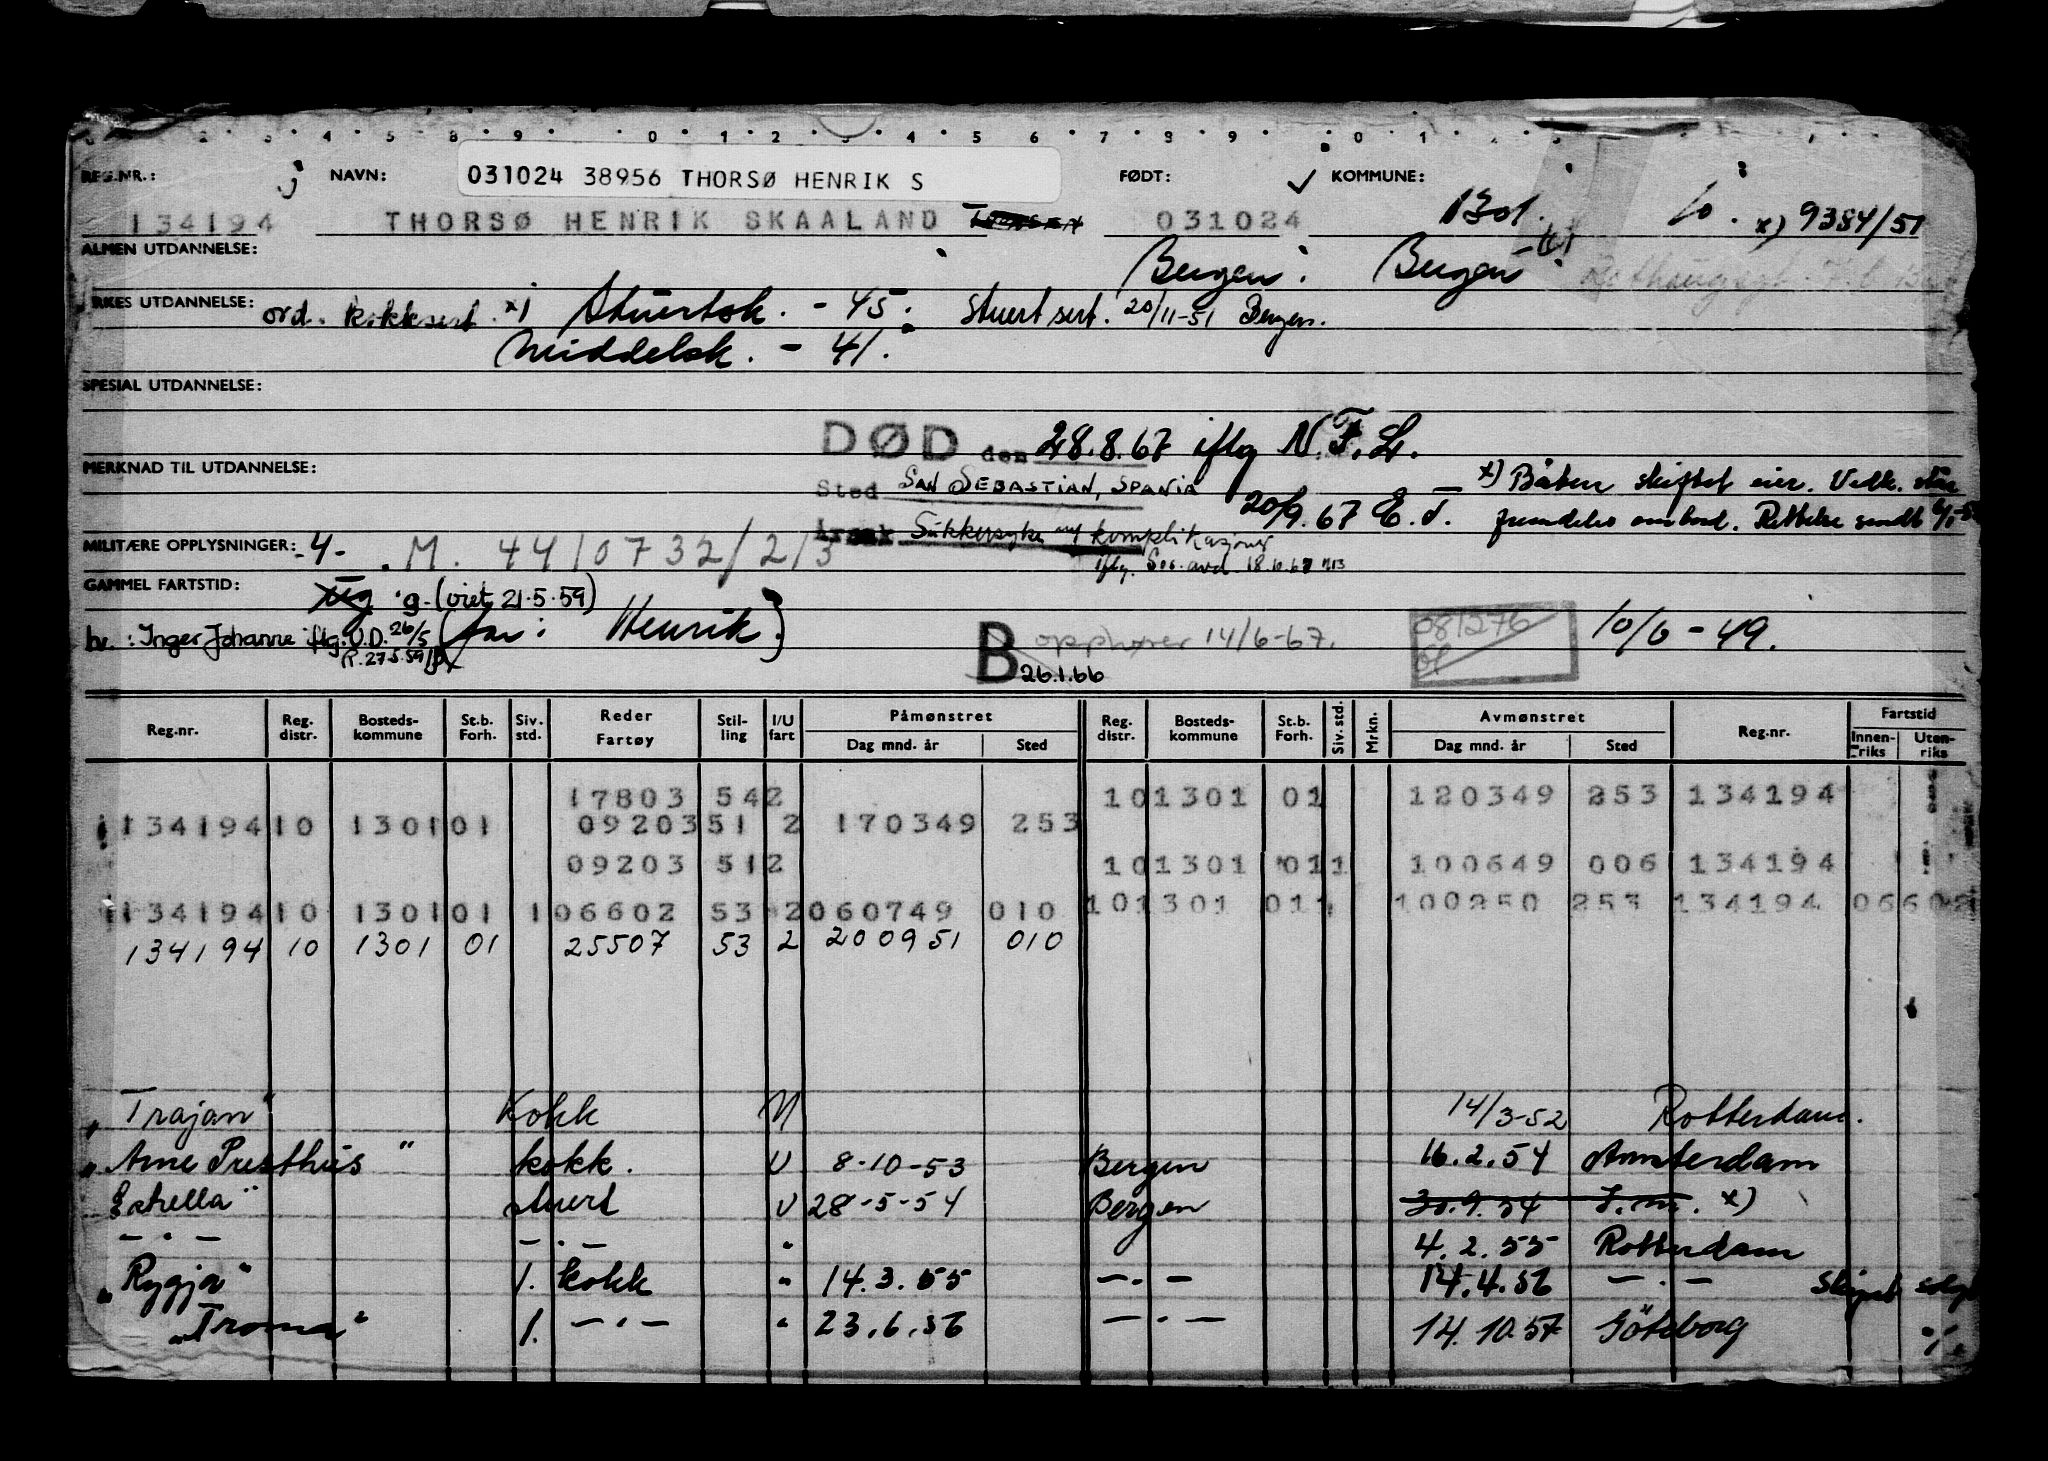 REG.NR.: NAVN: 031024 38956 THORSØ HENRIK S FØDT: ✓ KOMMUNE:
134194 THORSØ HENRIK SKAALAND 031024 1301. 10. x) 9384/51
ALMEN UTDANNELSE: Bergen. Bergen
YRKES UTDANNELSE: ord. kokksert. x) Stuertsk. - 45. Stuert sert. 20/11-51 Bergen.
Middelsk. - 41.
SPESIAL UTDANNELSE:
DØD den 28.8.67 iflg N.F.L.
MERKNAD TIL UTDANNELSE:
Sted SAN SEBASTIAN, SPANIA
x) Båten skiftet eier. Vedk. står
20/9.67 E.T. fremdeles ombord. Rettelse sendt
Årsak Sukkersyke m/ komplikasjoner
MILITÆRE OPPLYSNINGER: -4- . M. 4410732/2/3
iflg. Sos. avd.
GAMMEL FARTSTID: Ug g-(viet 21.5.59)
hv.: Inger Johanne iflg. U.D. 26/5 (far: Henrik.)
R.27.5.59
B opphører 14/6-67. 26.1.66
081276
10/6 - 49.
Reg.nr. Reg. distr. Bosteds- kommune St.b. Forh. Siv. std. Reder Fartøy Stil- ling I/U fart Påmønstret Dag mnd. år Sted Reg. distr. Bosteds- kommune St.b. Forh. Siv. std. Mrkn. Avmønstret Dag mnd. år Sted Reg.nr. Fartstid Innen- riks Uten- riks
17803 54 2 10 1301 01 120349 253 134194
134194 10 1301 01 09203 51 2 170349 253
09203 51 2 10 1301 01 1 100649 006 134194
134194 10 1301 01 1 06602 53 2 060749 010 10 1301 01 1 100250 253 134194 06602
134194 10 1301 01 25507 53 2 200951 010
"Trajan" Kokk U 14/3-52 Rotterdam.
"Arne Presthus" kokk. U 8-10-53 Bergen 16.2.54 Amsterdam
Estrella" stuert U 28-5-54 Bergen 30.9.54 x)
- " - - " - " 4.2.55 Rotterdam
"Rygja" 1. kokk " 14.3.55 - " - 14.4.56 - " - Skipet solgt
"Troma" 1. - " - " 23.6.56 - " - 14.10.57 Göteborg